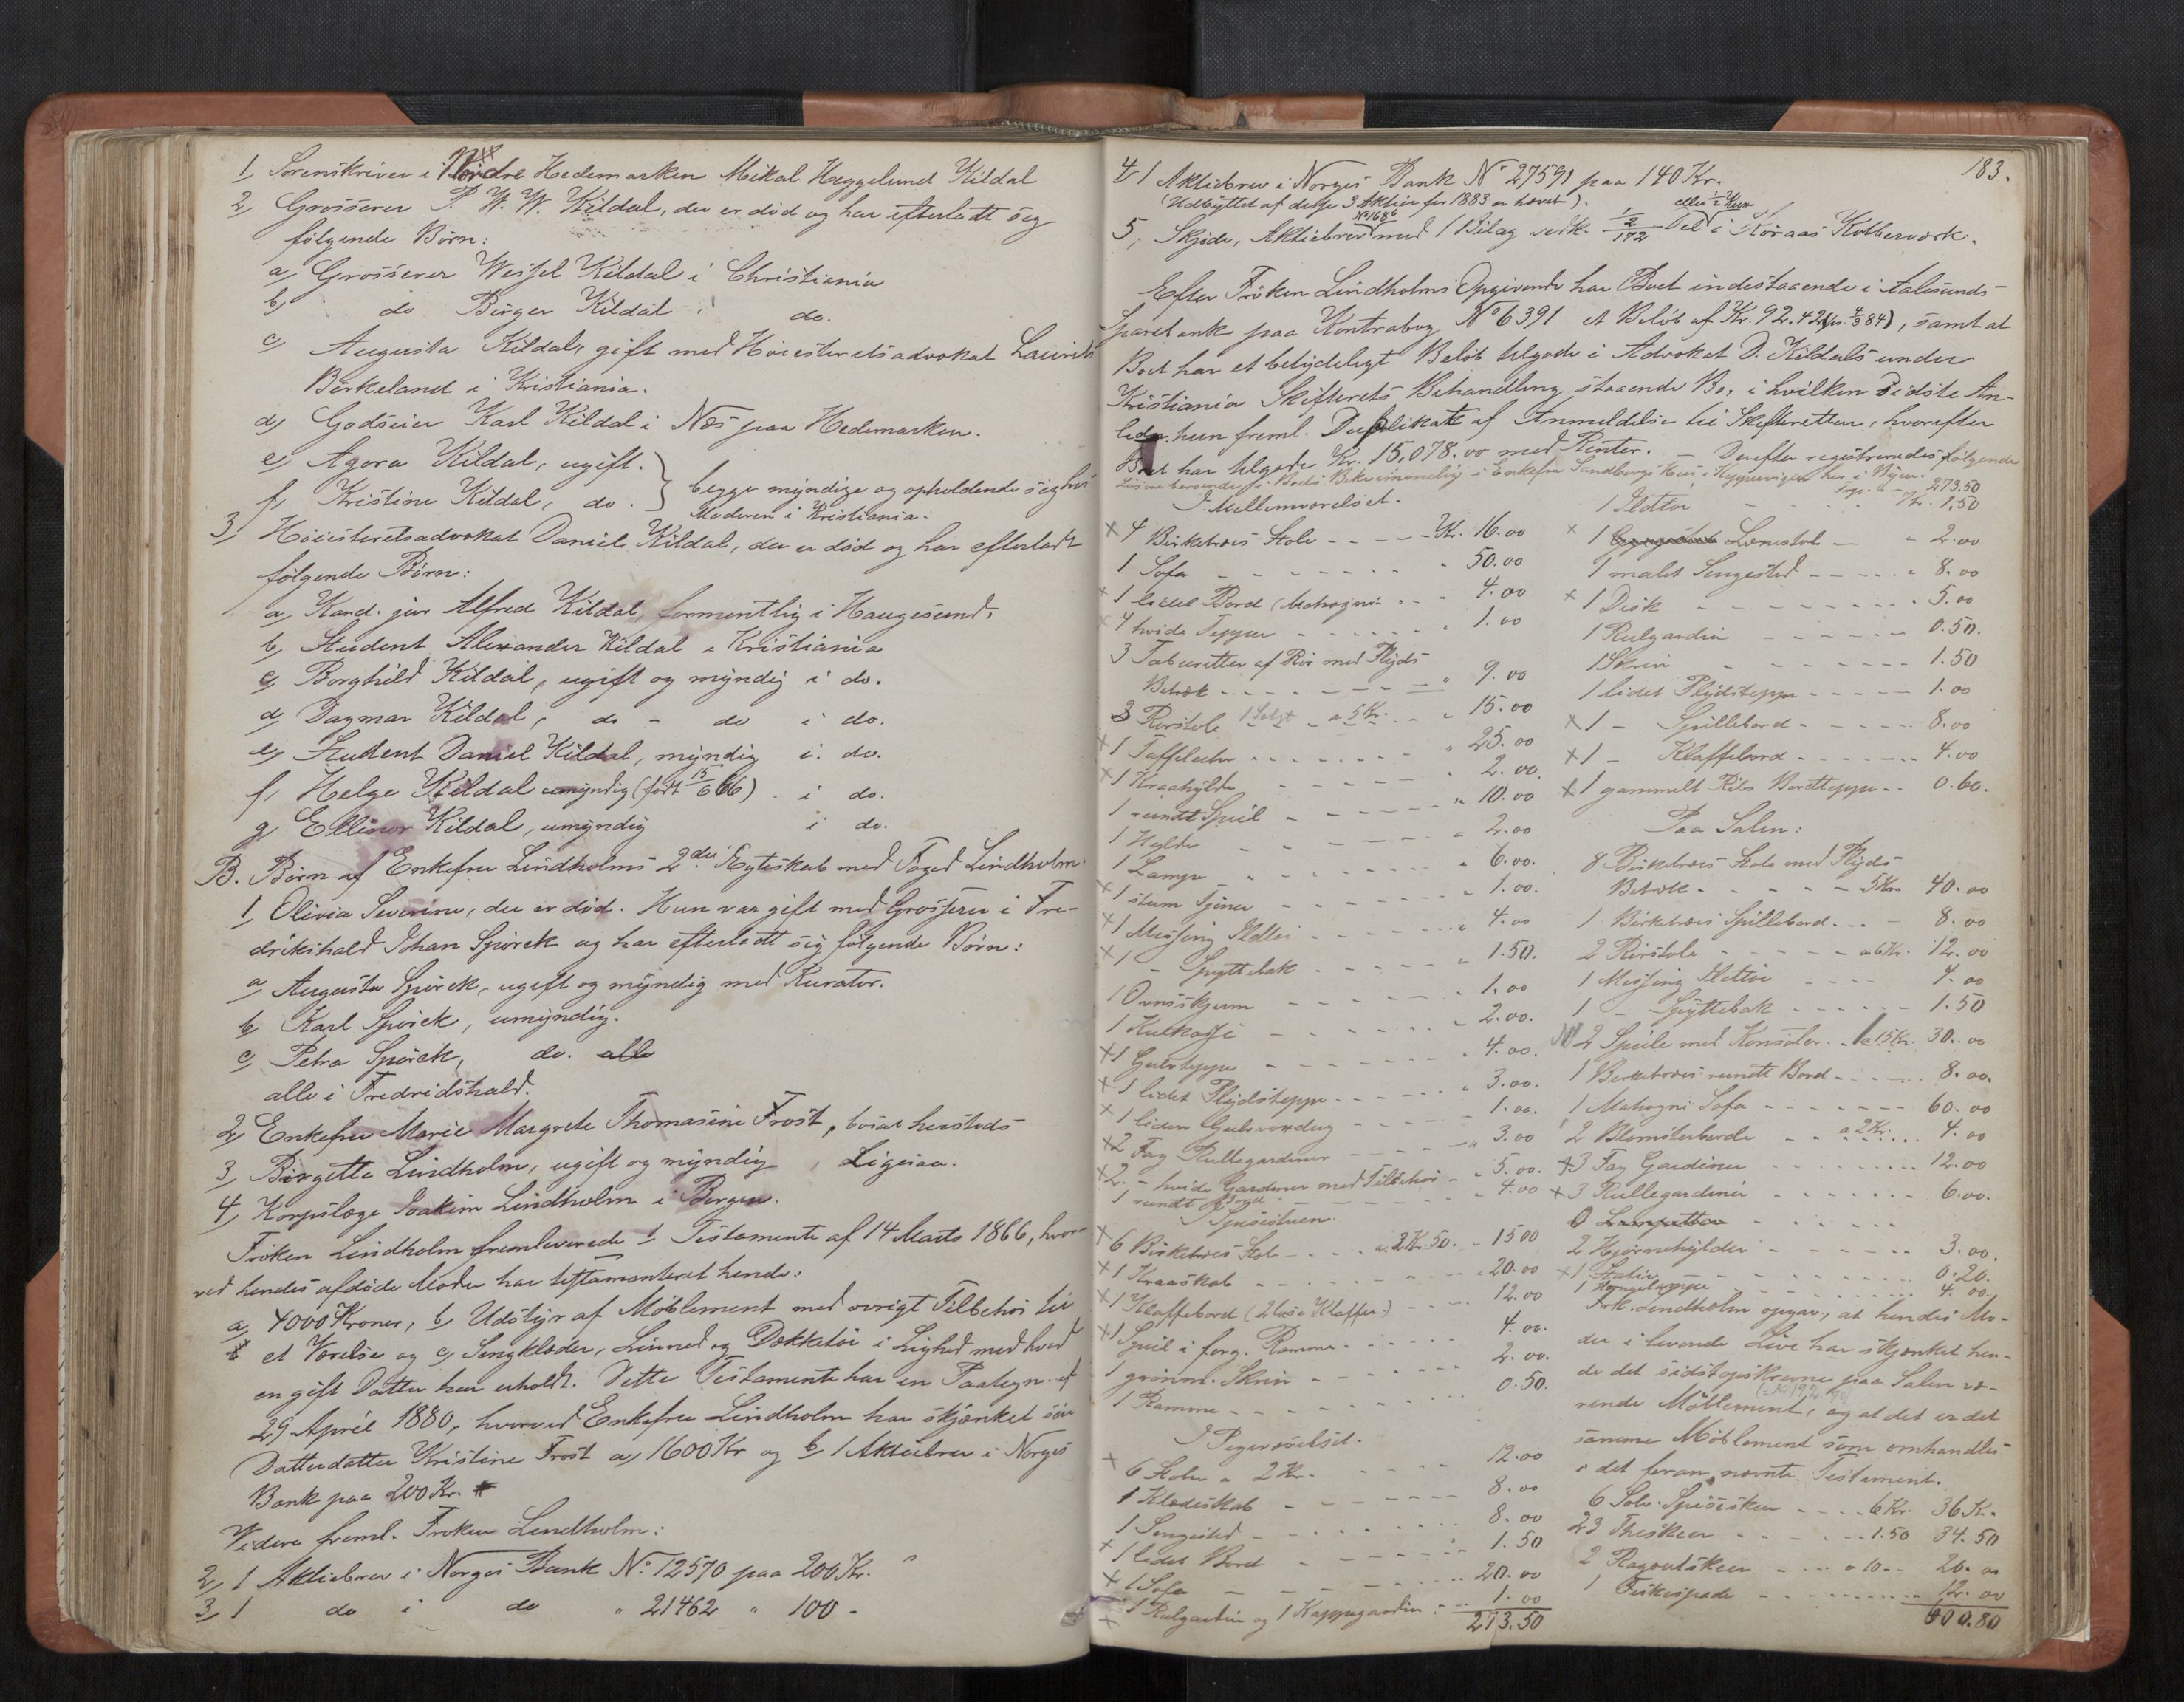 1, Sorenskriver i Nordre Hedemarken Mikal Heggelund Kildal
2, Grosserer P. W. W. Kildal, der er död og har efterladt sig
følgende Börn:
a, Grosserer Wessel Kildal i Christiania
b, do Birger Kildal i do.
c, Augusta Kildal, gift med Höiesteretsadvokat Laurits
Birkeland i Kristiania.
d, Godseier Karl Kildal i Næs paa Hedemarken.
e, Agora Kildal, ugift.
f, Kristine Kildal, do.
begge myndige og opholdende sig hos
Moderen i Kristiania.
3, Höiesteretsadvokat Daniel Kildal, der er död og har efterladt
følgende Börn:
a, Kand. jur Alfred Kildal, formentlig i Haugesund.
b, Student Alexander Kildal i Kristiania
c, Borghild Kildal, ugift og myndig i do.
d, Dagmar Kildal, do - do i do.
e, Student Daniel Kildal, myndig i do.
f, Helge Kildal umyndig (født 15/6 66) i do.
g, Ellinor Kildal, umyndig i do.
B. Börn af Enkefru Lindholms 2det Ægteskab med Foged Lindholm
1, Olivia Severine, der er död. Hun var gift med Grosserer i Fre-
drikshald Johan Spörck og har efterladt sig følgende Börn:
a, Augusta Spörck, ugift og myndig med Kurator.
b, Karl Spörck, umyndig.
c, Petra Spörck, do. alle
alle i Fredrikshald.
2, Enkefru Marie Margrete Thomasine Frost, boiar hersteds
3, Birgitte Lindholm, ugift og myndig, Ligesaa.
4, Korpslæge Joakim Lindholm i Bergen.
Fröken Lindholm fremleverede 1, Testamente af 14 Marts 1866, hvor-
ved hendes afdøde Moder har testamenteret hende:
a, 4000 Kroner, b, Udstyr af Möblement med övrigt Tilbehör til
et Værelse og c, Sengklæder, Linned og Dækketöi i Lighed med hvad
en gift Datter har erholdt. Dette Testamente har en Paategn. af
29 April 1880, hvorved Enkefru Lindholm har skjænket sin
Datterdatter Kristine Frost a, 1600 Kr og b, 1 Aktiebrev i Norges
Bank paa 200 Kr.
Videre freml. Fröken Lindholm:
2, 1 Aktiebrev i Norges Bank No 12570 paa 200 Kr.
3, 1 do i do " 21462 " 100 -
183.
4, 1 Aktiebrev i Norges Bank No 27591 paa 140 Kr.
(Udbyttet af disse 3 Aktier for 1883 er hævet).
eller 1/2 Kux
5, Skjøde, Aktiebrev No 1686 med 1 Bilag vedk. 1/2/172 Del i Röraas Kobberværk.
Efter Fröken Lindholms Opgivende har Boet indestaaende i Aalesunds
Sparebank paa Kontrabog No 6391 et Belöb af Kr. 92.42 (pr. 4/3 84), samt at
Boet har et betydeligt Belöb tilgode i Advokat D. Kildals under
Kristiania Skifterets Behandling staaende Bo, i hvilken sidste An-
ledn. hun freml. Duplikat af Anmeldelse til Skifteretten, hvorefter
Boet har tilgode Kr. 15,078.00 med Renter. - Derefter registreredes følgende
Lösöre beroende i Boets Bekvemmelighed i Enkefru Sandbergs Hus i Kipperviken her i Byen.
I Mellemværelset.
x 4 Birketræs Stole - Kr. 16.00
1 Sofa - " 50.00
x 1 lidet Bord (Mahogni - " 4.00
x 4 hvide Tepper - " 1.00
3 Taburetter af Rör med Plyds
Betræk - " 9.00
3 Rörstole 1 Solgt a 5 Kr. " 15.00
x 1 Taffeluhr - " 25.00
x 1 Kraahylde - 2.00.
1 rundt Speil - " 10.00
1 Hylde - " 2.00
1 Lampe - " 6.00.
x 1 stum Tjener - " 1.00.
x 1 Messing Ildtöi - " 4.00
x 1 - Spyttebak - " 1.50.
1 Ovnsskjerm - " 1.00
1 Kulkasse - " 2.00.
x 1 Gulvteppe - " 4.00.
x 1 lidet Plydsteppe - " 3.00.
x 1 liden Gulvvarder - 1.00.
x 2 Fag Rullegardiner - " 3.00
x 2 - hvide Gardiner med Tilbehör - " 5.00.
1 rundt Bord - " 4.00
I Spisestuen.
x 6 Birketræs Stole - a 2 Kr. 50. - 15 00
x 1 Kraaskab - " 20.00
x 1 Klaffebord (2 löse Klaffer) - 12.00
x 1 Speil i forg. Ramme - 4.00.
1 grönm. Skrin - 2.00.
1 Ramme - 0.50.
I Pigeværelset.
x 6 Stole a 2 Kr. - 12.00
1 Klædeskab - 8.00
1 Sengested - 8.00
x 1 lidet Bord - 1.50
x 1 Sofa - 20.00
x 1 Rulgardin og 1 Kappegardin - 1.00
273.50
Trsp. - 273.50
1 Ildtöi - Kr. 1.50
x 1 Lænestol - " 2.00
1 malet Sengested - " 8.00
x 1 Disk - " 5.00
1 Rulgardin - 0.50.
1 Skrin - 1.50
1 lidet Plydsteppe - 1.00
x 1 - Spillebord - 8.00
x 1 - Klaffebord - 4.00
x 1 gammelt Ribs Bordteppe - 0.60.
Paa Salen:
8 Birketræs Stole med Plyds
Betræk - 5 Kr. 40.00
1 Birketræs Spillebord - 8.00
2 Rörstole - a 6 Kr. 12.00
1 Messing Ildtöi - 4.00
1 - Spyttebak - 1.50
2 Speile med Konsoler - a 15 Kr. 30.00
1 Birketræs rundt Bord - 8.00.
1 Mahogni Sofa - 60.00
2 Blomsterborde - a 2 Kr. 4.00
x 3 Fag Gardiner - 12.00
x 3 Rullegardiner - 6.00.
2 Hjørnehylder - 3.00.
x 1 Stativ - 0.20.
1 Hængelampe - 4.00.
Frk. Lindholm opgav, at hendes Mo-
der i levende Live har skjænket hen-
de det sidstopskrevne paa Salen væ-
rende Möblement, og at det er det
samme Möblement som omhandles
i det foran nævnte Testament.
6 Sölv Spiseskeer - 6 Kr. 36 Kr.
23 Theskeer - 1.50 34.50
2 Ragoutskeer - a 10 - 20.00
1 Fiskespade - 12.00
600.80